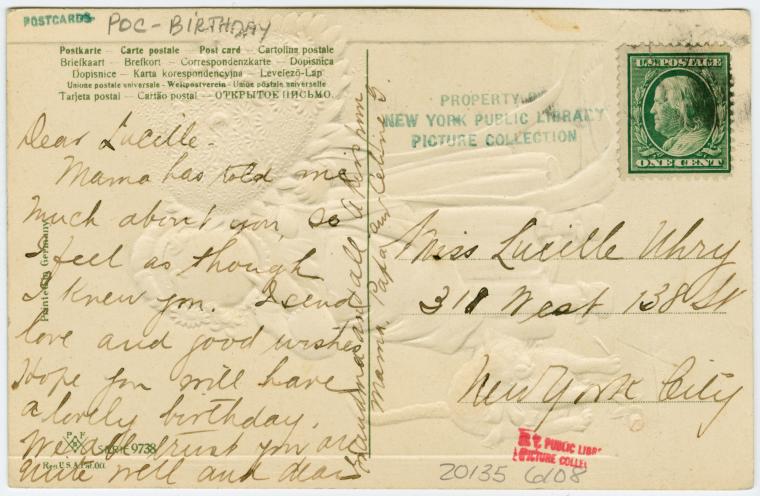 POSTCARDS
POC-BIRTHDAY
Postkarte – Carte postale – Post card – Cartolina postale
Briefkaart – Brefkort – Correspondenzkarte – Dopisnica
Dopisnice – Karta korespondencyjna – Levelező-Lap
Unione postale universale - Weltpostverein - Union postale universelle
Tarjeta postal – Cartão postal – ОТКРЫТОЕ ПИСЬМО.
Dear Lucille -
Mama has told me
much about you, so
I feel as though
I knew you. I send
love and good wishes
Hope you will have
a lovely birthday.
We all trust you are
quite well and dear
Grandma and all. A kiss from
Mama. Papa and
Printed in Germany
SERIE 9738
Reg. U.S.A. Pat. Off.
PROPERTY OF
NEW YORK PUBLIC LIBRARY
PICTURE COLLECTION
U.S. POSTAGE
ONE CENT
Miss Lucille Uhry
318 West 138 St
New York City
PUBLIC LIBR
PICTURE COLLE
20135 6108